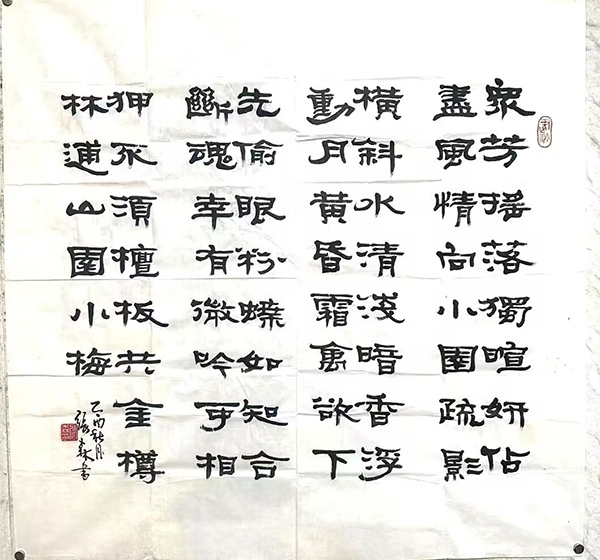 衆芳摇落獨暄妍佔
盡風情向小園疏影
橫斜水清浅暗香浮
動月黃昏霜禽欲下
先偷眼粉蝶如知合
斷魂幸有微吟可相
狎不須檀板共金樽
林逋山園小梅
乙酉秋月
張森書